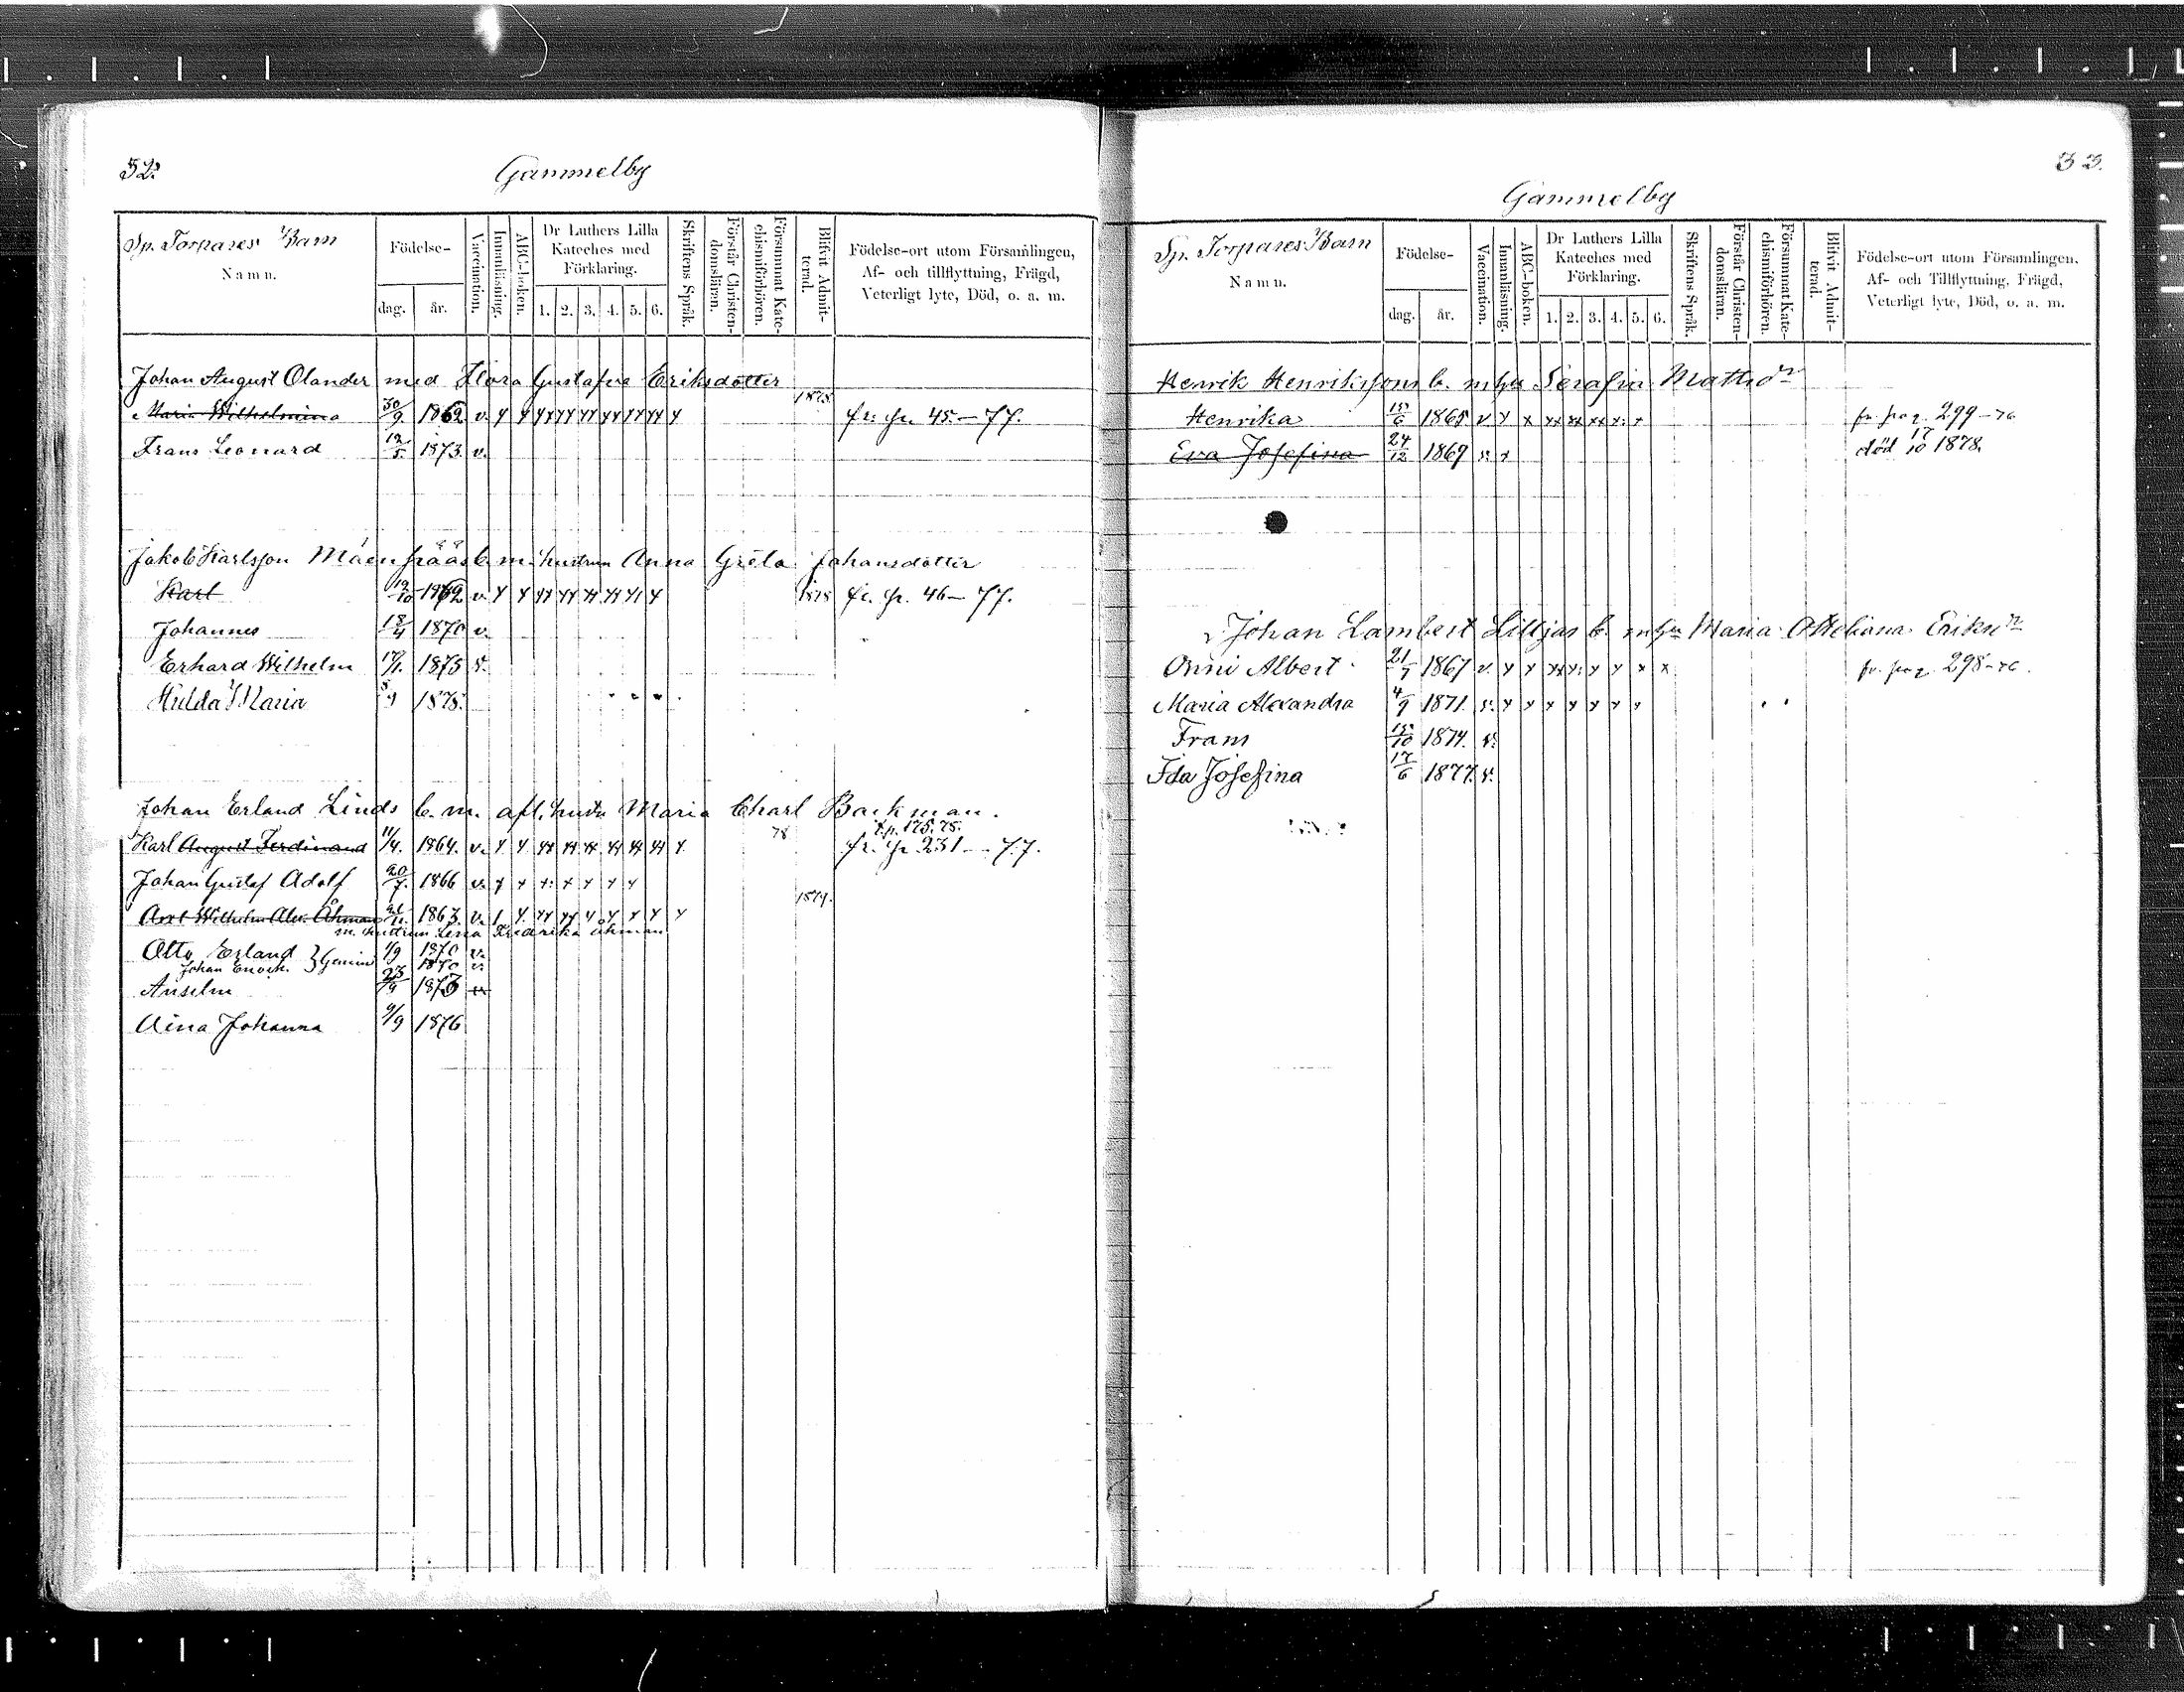 32.
Gammelby
Sp. Torpares Barn
Namn.
Födelse-
dag.
år.
Vaccination.
Innanläsning.
ABC-boken.
Dr Luthers Lilla
Kateches med
Förklaring.
1. 2. 3. 4. 5. 6.
Skriftens Språk.
Förstår Christen-
domsläran.
Försummat Kate-
chismiförhören.
Blifvit Admit-
terad.
Födelse-ort utom Församlingen,
Af- och tillflyttning, Frägd,
Veterligt lyte, Död, o. a. m.
Johan August Olander med Flora Gustafva Eriksdotter
Maria Wilhelmina 30/9 1862 v. 1878 fr. p. 45.-77.
Frans Leonard 12/5 1873 v.
Jakob Karlsson b. m. hustrun Anna Greta Johansdotter
Karl 19/10 v. 1878 fr. p. 46-77.
Johannes 18/4 1870 v.
Erhard Wilhelm 1875 v.
Hulda Maria 1878.
Johan Erland Linds b. m. afl. hustr Maria Charl Backman.
t.p. 175. 78.
Karl August Ferdinand 11/4. 1864. v. 78 fr. p. 231-77.
Johan Gustaf Adolf 20/7. 1866 v.
Axel Wilhelm Alex. Åhman 1863 v. 1879.
m. hustrun Lena Fredrika Åhman
Otto Erland } Gemin 1/9 1870 v.
Johan Enoch. 1870 v.
Anselm 23/9 1873
Aina Johanna 9/9 1876
33.
Gammelby
Sp. Torpares Barn
Namn.
Födelse-
dag.
år.
Vaccination.
Innanläsning.
ABC-boken.
Dr Luthers Lilla
Kateches med
Förklaring.
1. 2. 3. 4. 5. 6.
Skriftens Språk.
Förstår Christen-
domsläran.
Försummat Kate-
chismiförhören.
Blifvit Admit-
terad.
Födelse-ort utom Församlingen,
Af- och Tillflyttning, Frägd,
Veterligt lyte, Död, o. a. m.
Henrik Henrikssons b. m hu Serafia Mattsdr
Henrika 15/6 1865 v fr. pag. 299-76
Eva Josefina 24/12 1869 död 17/10 1878.
Johan Lambert Liljas b. m hu Maria Otteliana Eriksdr
Onni Albert 21/7 1867 v. fr. pag 298-76.
Maria Alexandra 4/9 1871. v.
Frans 15/10 1874. v.
Ida Josefina 17/6 1877. v.